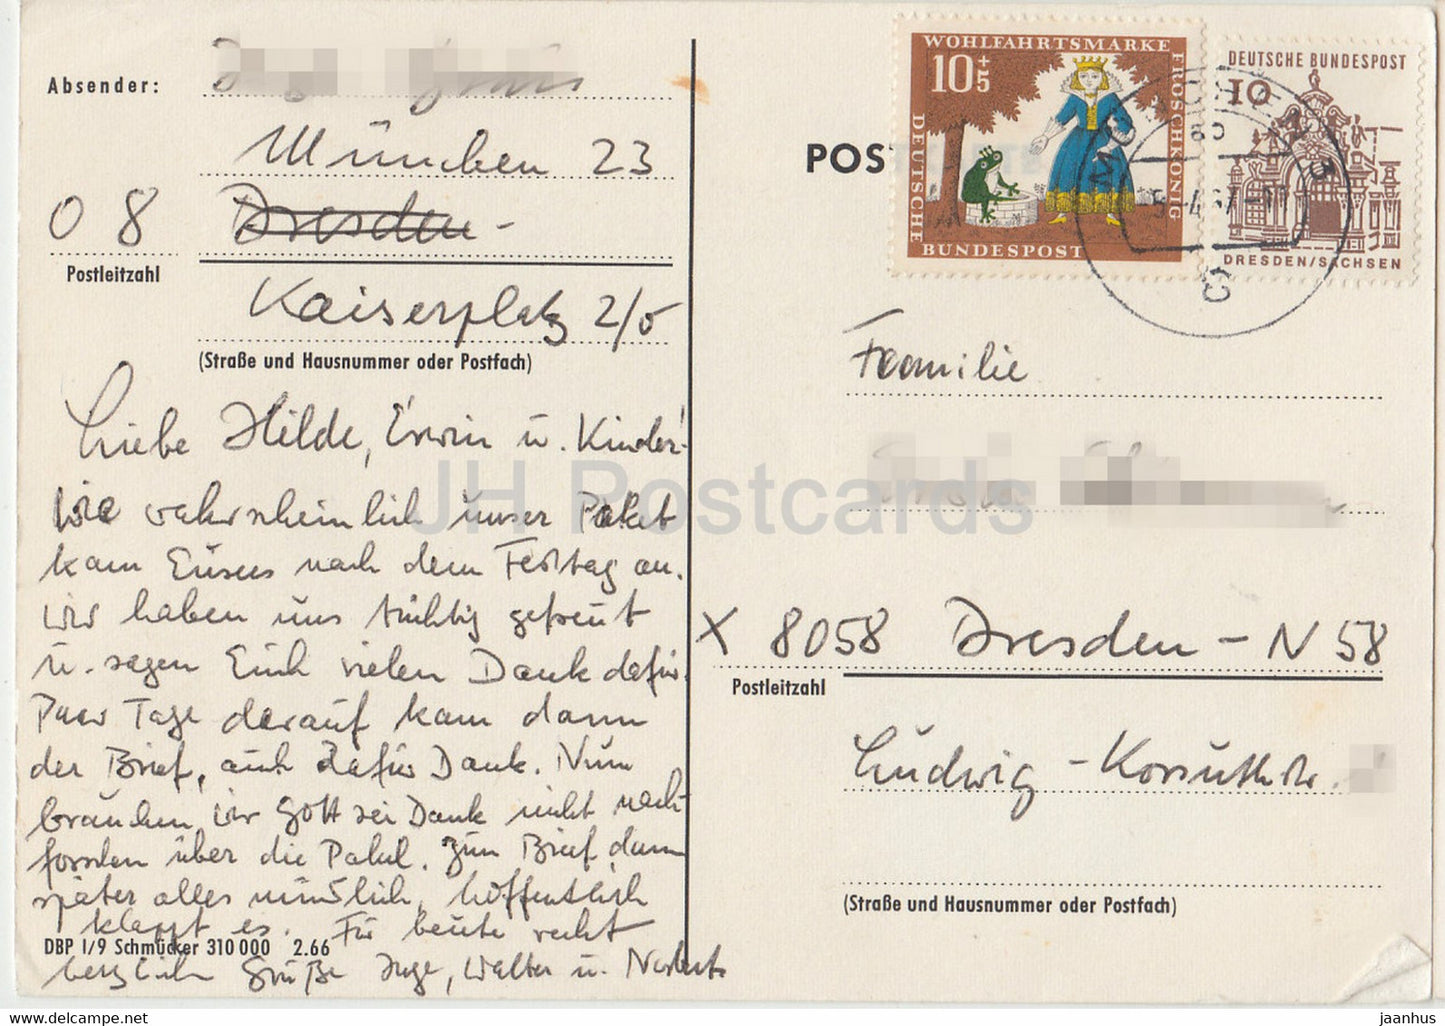 Absender:
München 23
0 8 Dresden -
Postleitzahl
Kaiserplatz 2/0
(Straße und Hausnummer oder Postfach)
Liebe Hilde, Erwin u. Kinder!
Wie wahrscheinlich unser Paket
kam Eures nach dem Festtag an.
Wir haben uns tüchtig gefreut
u. sagen Euch vielen Dank dafür.
Paar Tage darauf kam dann
der Brief, auch dafür Dank. Nun
brauchen wir Gott sei Dank nicht nach-
forschen über die Pakete. Zum Brief dann
später alles mündlich, hoffentlich
klappt es. Für heute recht
herzlich Grüße Inge, Walter u. Norbert
DBP I/9 Schmücker 310 000 2.66
WOHLFAHRTSMARKE
10+5
FROSCHKÖNIG
DEUTSCHE
BUNDESPOST
DEUTSCHE BUNDESPOST
10
DRESDEN/SACHSEN
MÜNCHEN 3
POS
Familie
X 8058 Dresden - N 58
Postleitzahl
Ludwig - Kossuthstr.
(Straße und Hausnummer oder Postfach)
JH Postcards
jaanhus